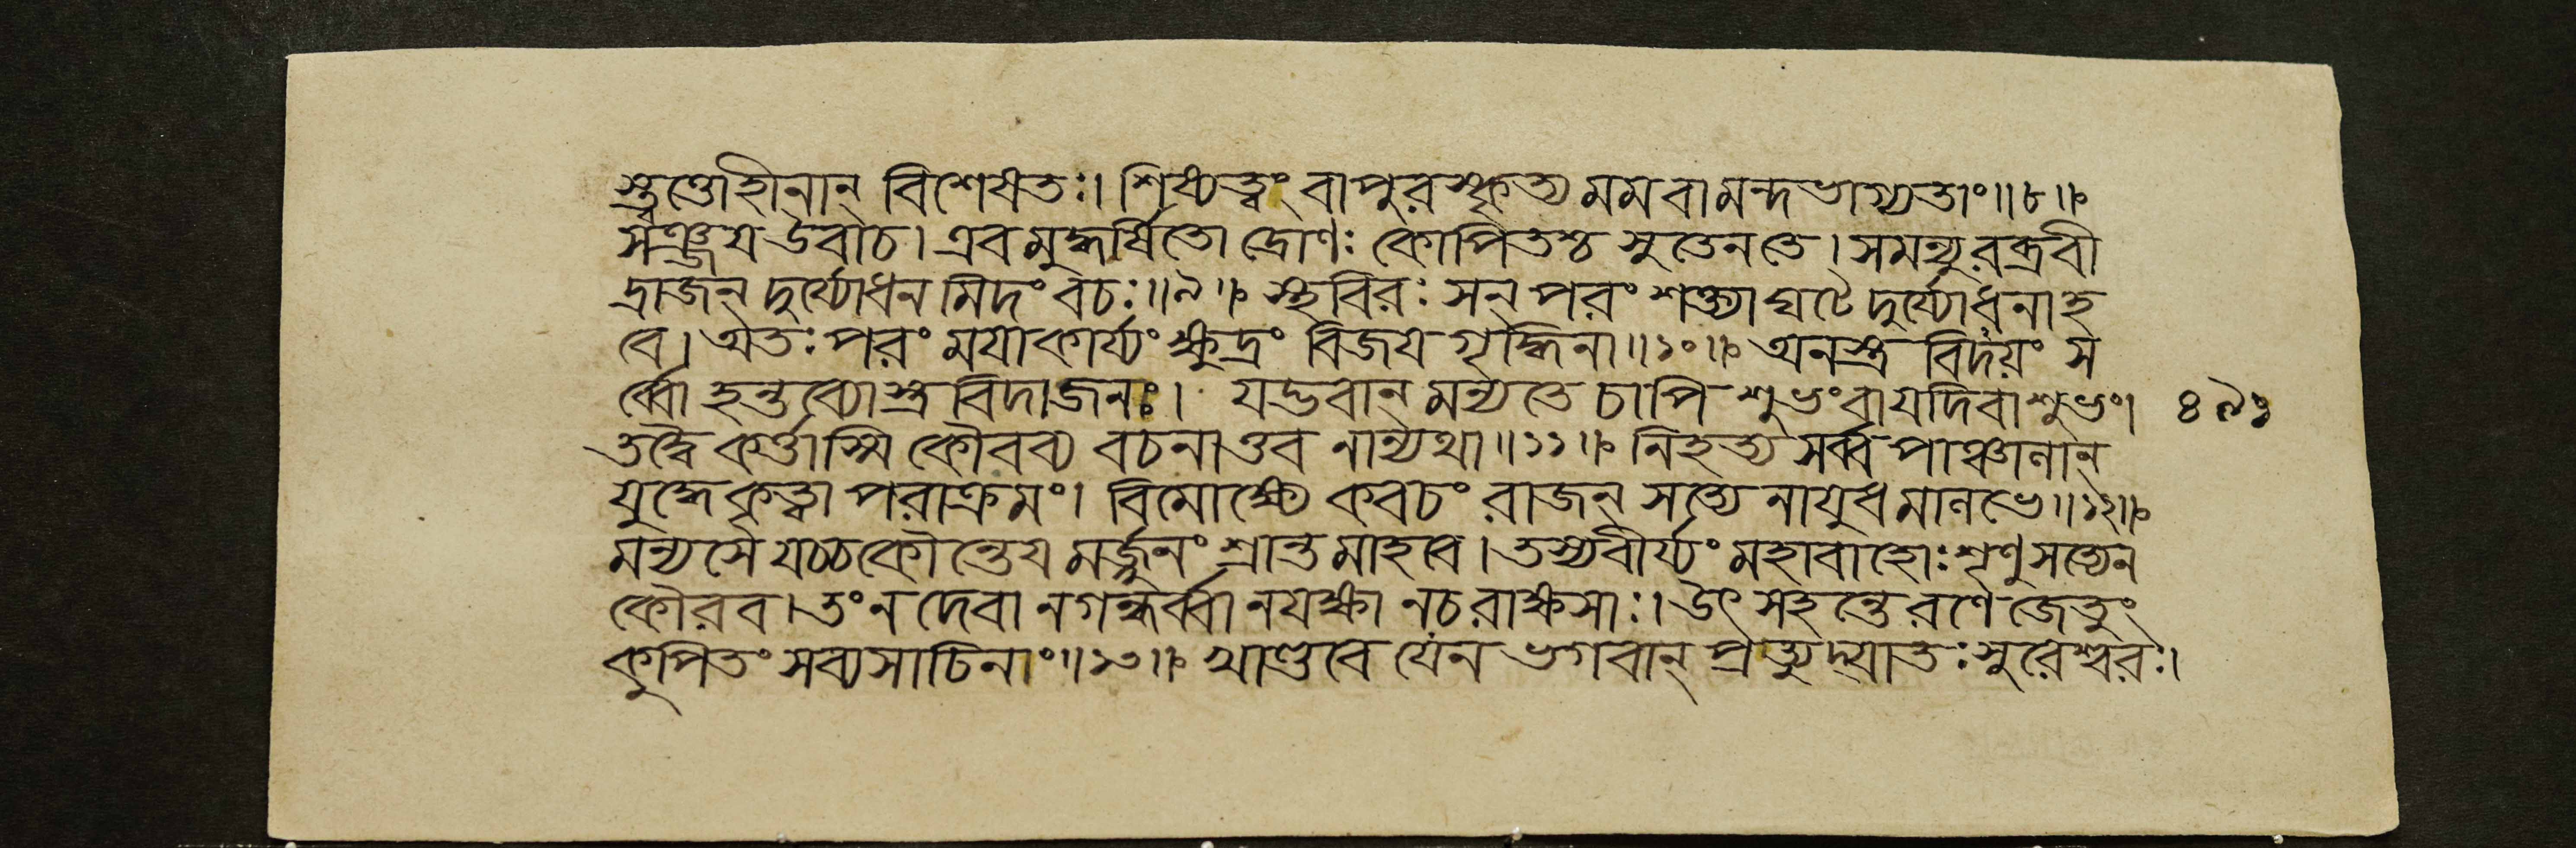 স্ত্বত্তোহীনান্ বিশেষতঃ। শিষ্যত্বং বাপুরস্কৃত্য মমবামন্দভাগ্যতাং॥৮॥
সঞ্জয উবাচ। এবমুদ্ধর্ষিতো দ্রোণঃ কোপিতশ্চ সুতেনতে। সমন্যুরব্রবী
দ্রাজন্ দুর্য্যোধন মিদং বচঃ॥৯॥ স্থবিরঃ সন্ পরং শক্ত্যা ঘটে দুর্য্যোধনাহ
বে। অতঃ পরং মযাকার্য্যং ক্ষুদ্রং বিজয গৃদ্ধিনা॥১০॥ অনস্ত্র বিদয়ং স
র্ব্বো হন্তব্যোস্ত্র বিদাজনঃ। যদ্ভবান্ মন্যতে চাপি শুভংবাযদিবাশুভং। ৪৯১
তদ্বৈ কর্ত্তাস্মি কৌরব্য বচনাত্তব নান্যথা॥১১॥ নিহত্য সর্ব্ব পাঞ্চালান্
যুদ্ধেকৃত্বা পরাক্রমং। বিমোক্ষ্যে কবচং রাজন্ সত্যে নাযুধ মালভে॥১২॥
মন্যসে যচ্চকৌন্তেয মর্জ্জুনং শ্রান্ত মাহবে। তস্যবীর্য্যং মহাবাহোঃ শৃণুসত্যেন
কৌরব। তং ন দেবা নগন্ধর্ব্বা নযক্ষা নচরাক্ষসাঃ। উৎসহন্তে রণে জেতুং
কুপিতং সব্যসাচিনাং॥১৩॥ খাণ্ডবে যেন ভগবান্ প্রত্যুদ্যাতঃ সুরেশ্বরঃ।